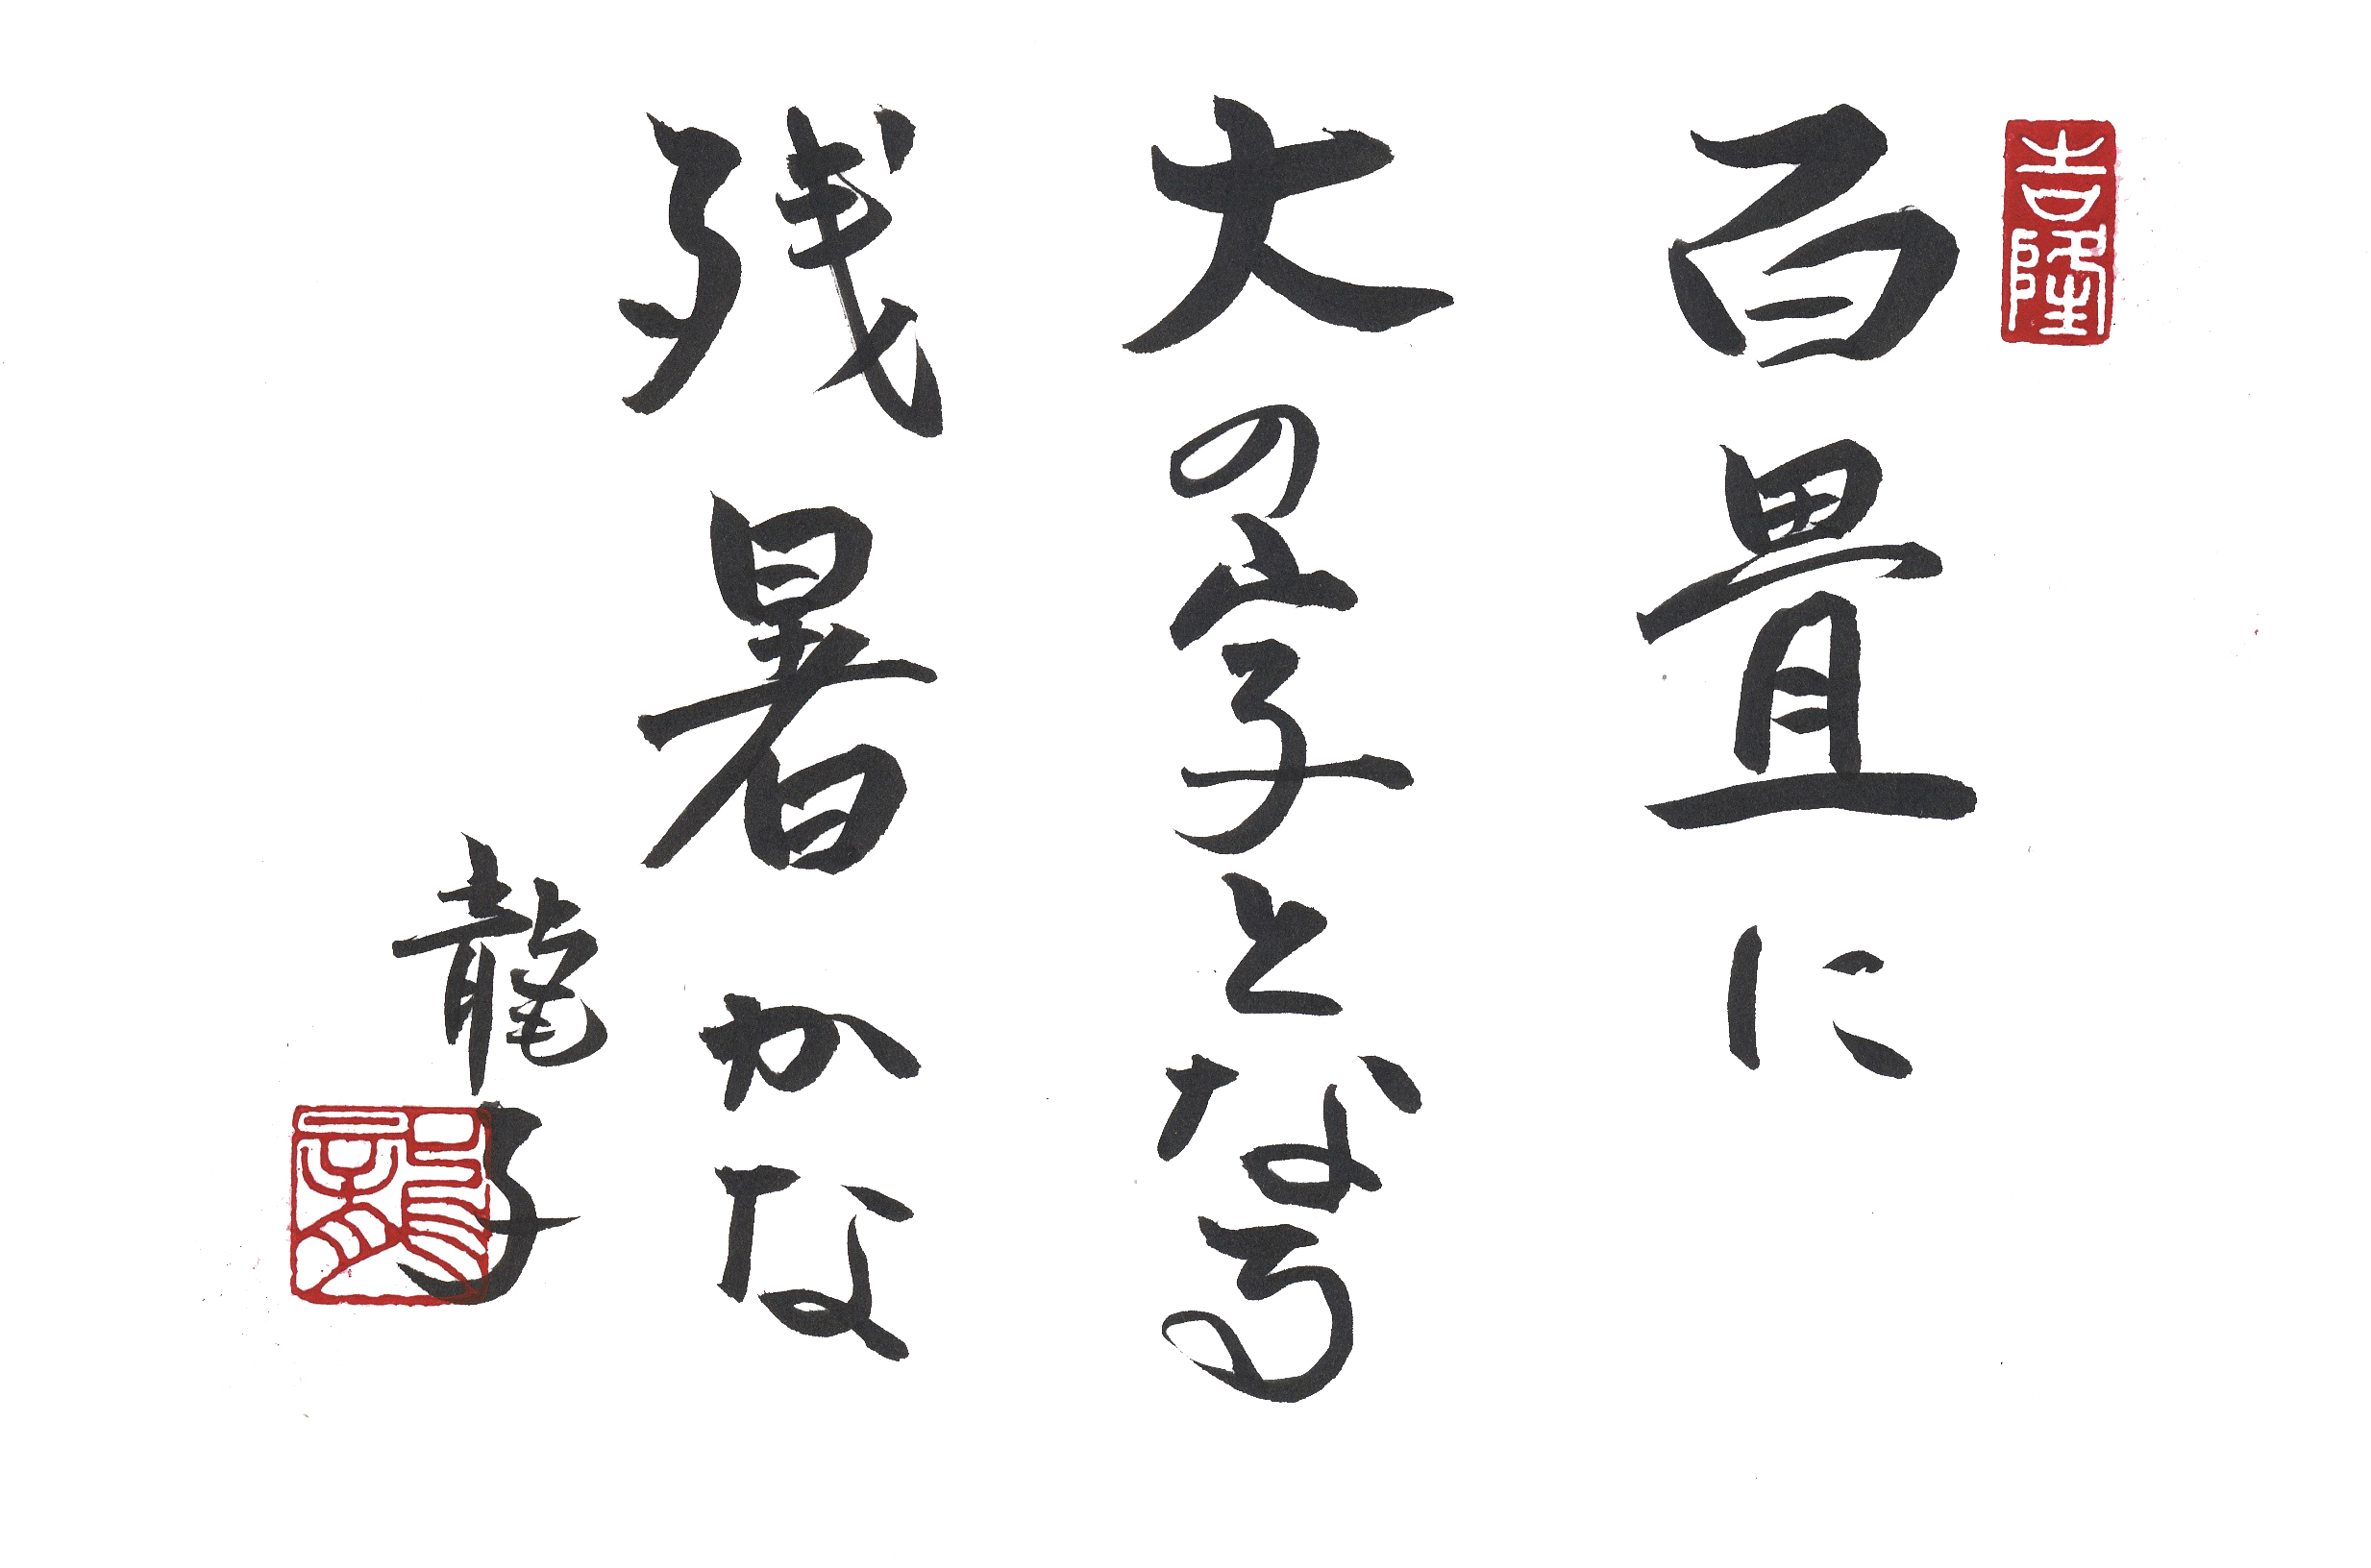 吉隆
百畳に
大の字となる
残暑かな
龍子